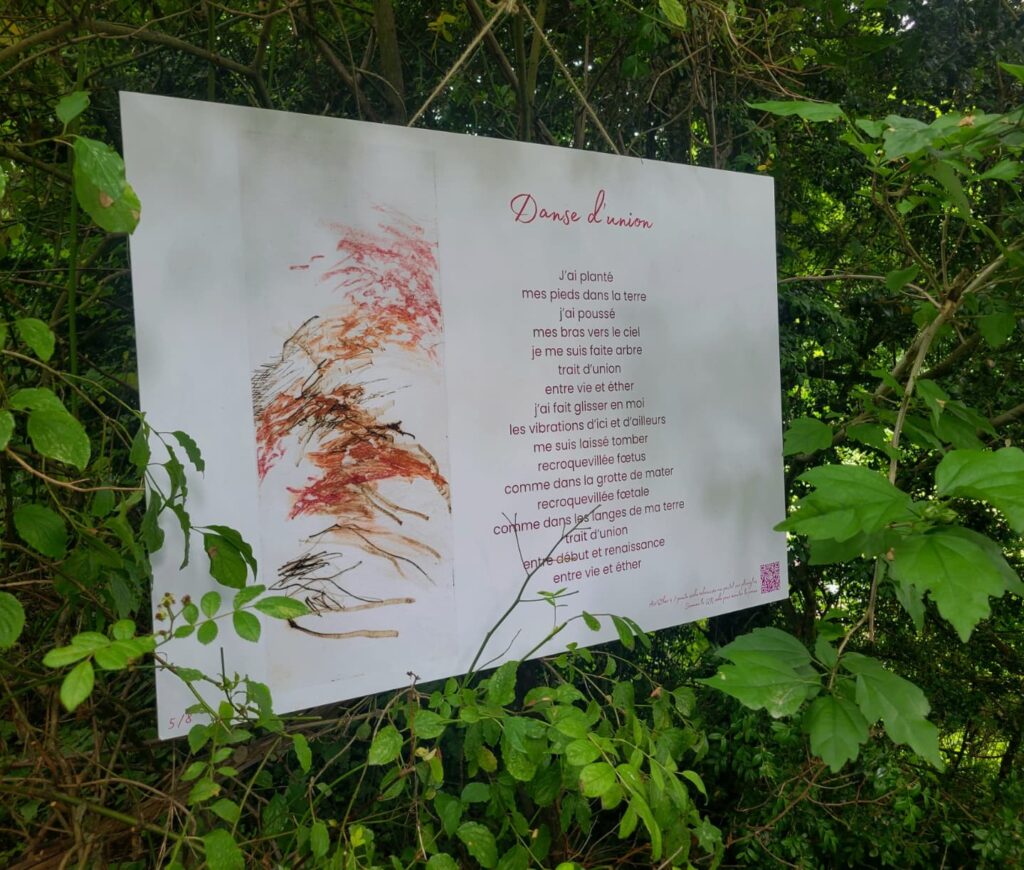 Danse d'union
J'ai planté
mes pieds dans la terre
j'ai poussé
mes bras vers le ciel
je me suis faite arbre
trait d'union
entre vie et éther
j'ai fait glisser en moi
les vibrations d'ici et d'ailleurs
me suis laissé tomber
recroquevillée fœtus
comme dans la grotte de mater
recroquevillée fœtale
comme dans les langes de ma terre
trait d'union
entre début et renaissance
entre vie et éther
5/8